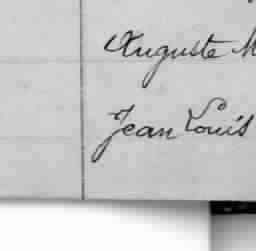 Auguste M
Jean Louis